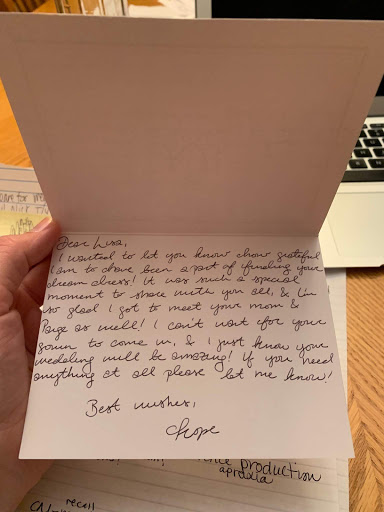 Dear Lisa,
I wanted to let you know how grateful
I am to have been a part of finding your
dream dress! It was such a special
moment to share with you all, & I'm
so glad I got to meet your mom &
Paige as well! I can't wait for your
gown to come in, & I just know your
wedding will be amazing! If you need
anything at all please let me know!
Best wishes,
Hope
production
apraxia
recall